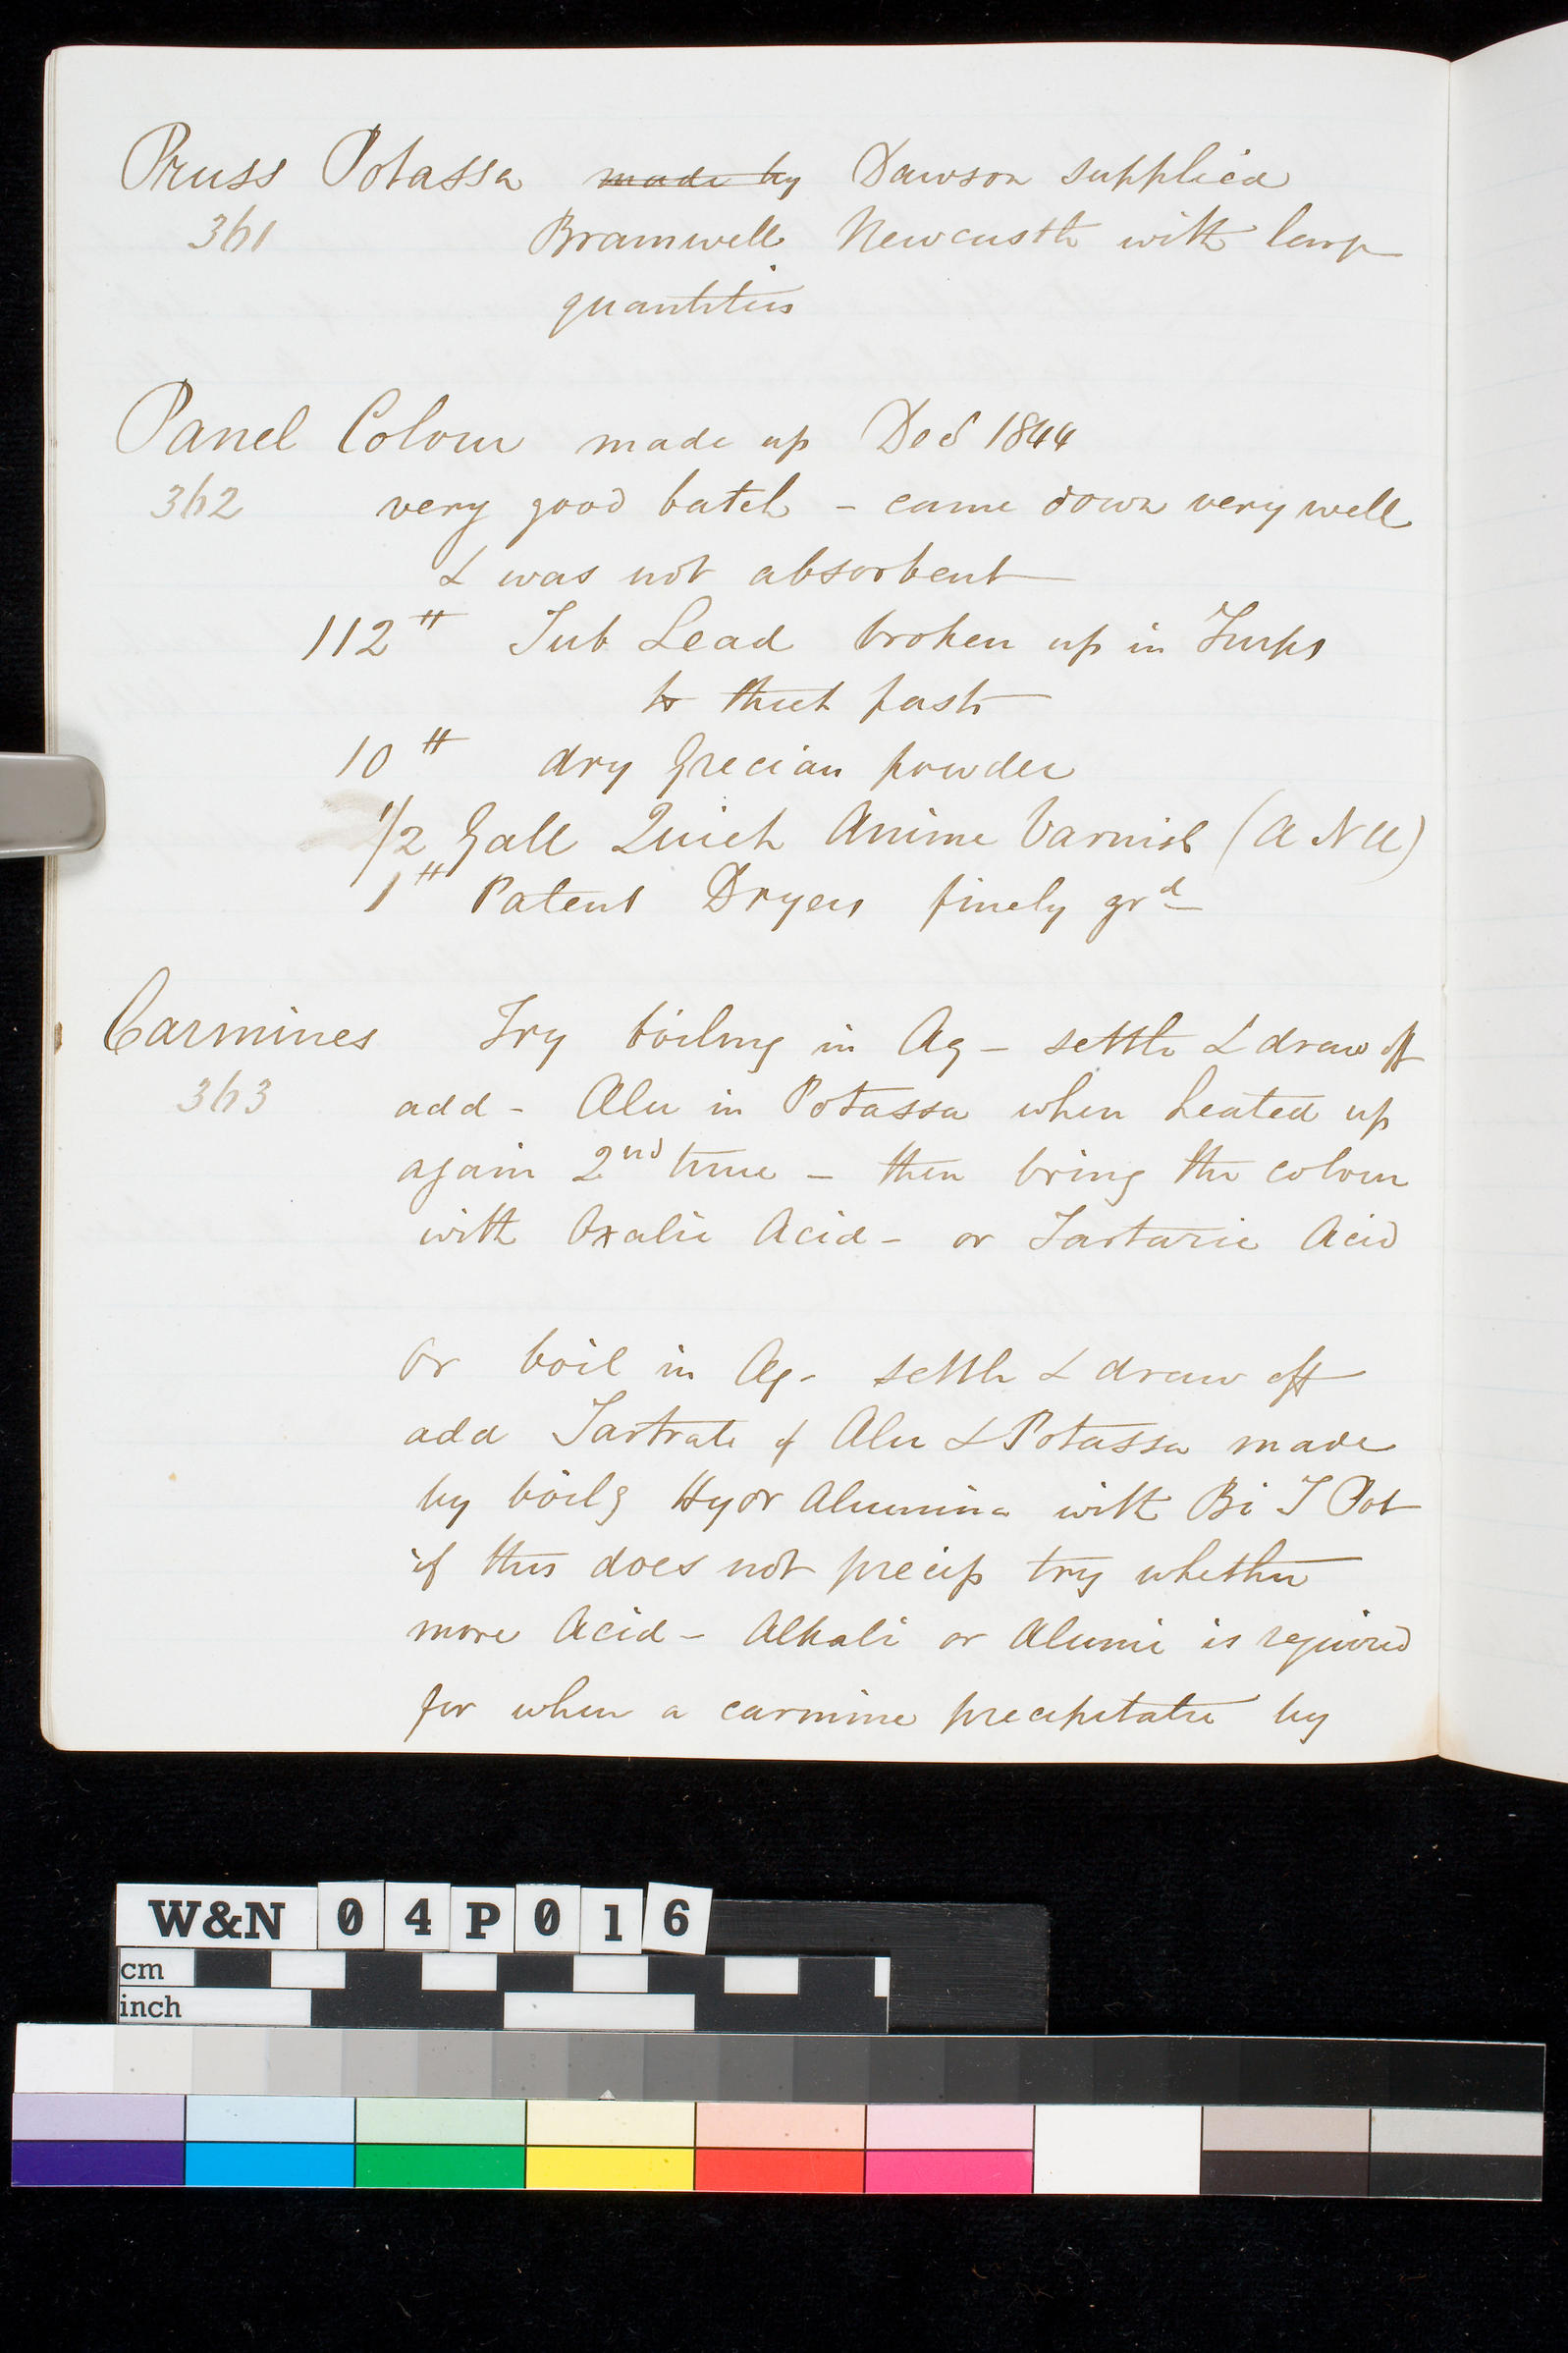 Pruss Potassa made by Dawson supplied
361 Bramwell Newcastle with large
quantities
Panel Colour made up Decr 1844
362 very good batch - came down very well
& was not absorbent
112 # Tub Lead broken up in Turps
to thick paste
10 # dry Grecian powder
1/2 Gall Quick Anime Varnish (A N A)
1 # Patent Dryers finely grd
Carmines Try boiling in Aq - settle & draw off
363 add - Alu in Potassa when heated up
again 2nd time - then bring the colour
with Oxalic Acid - or Tartaric Acid
or boil in Aq - settle & draw off
add Tartrate of Alu & Potassa made
by boilg Hydr Alumina with Bi T Pot
if this does not precip try whether
more Acid - Alkali or Alumi is required
for when a carmine precipitate by
W&N 04P016
cm
inch